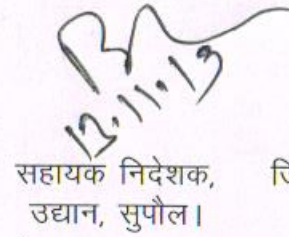 12.11.13
सहायक निदेशक,
उद्यान, सुपौल।